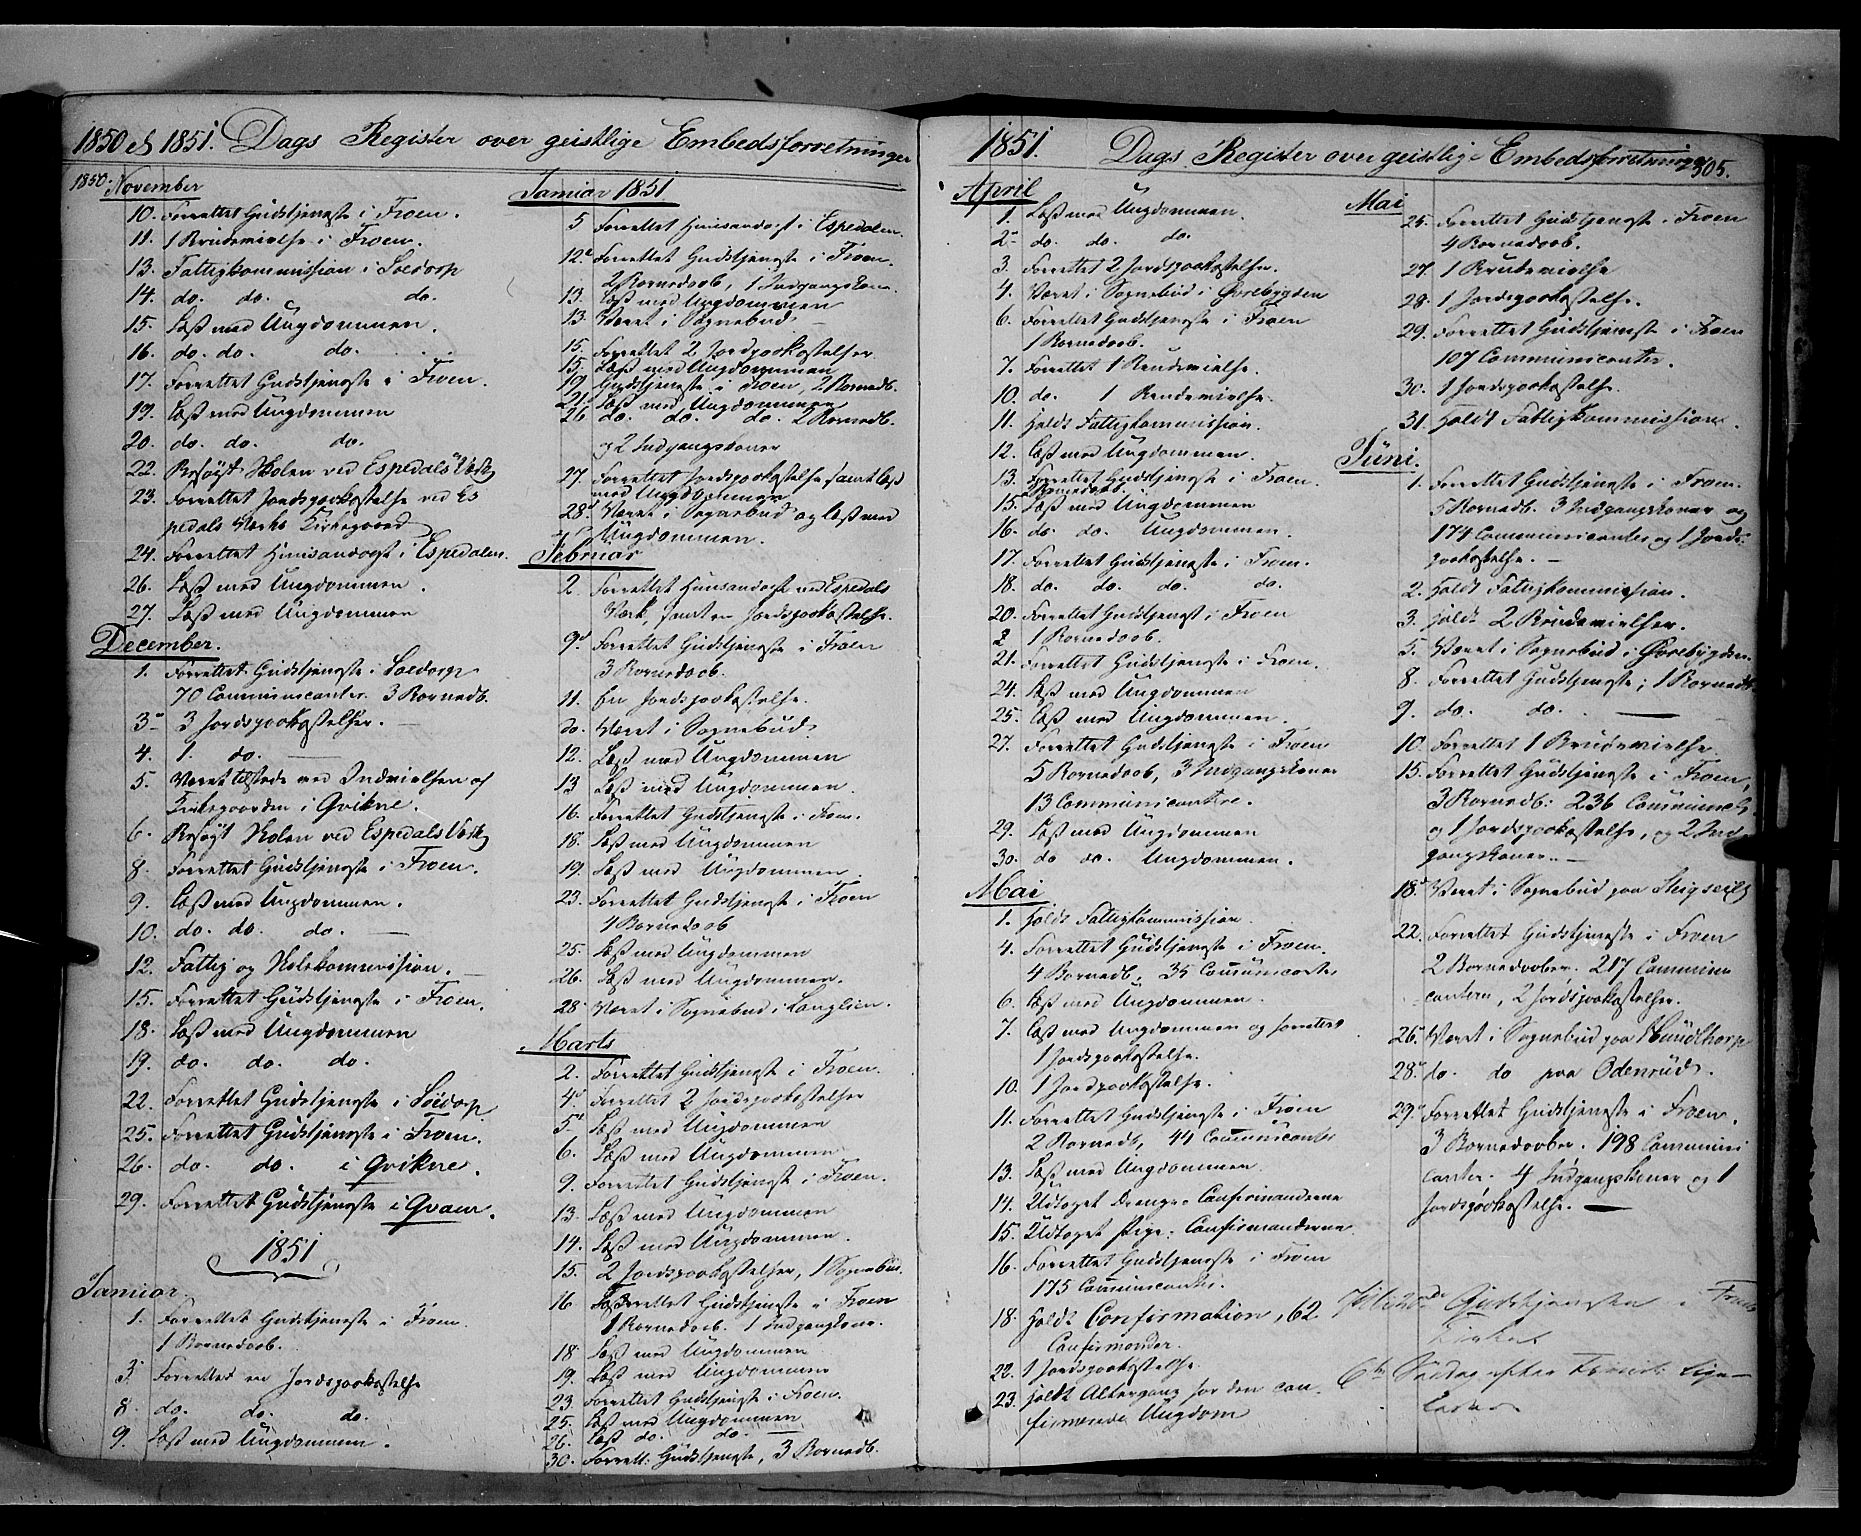 1850 et 1851. Dags Register over geistlige Embedsforretninger
1850. November
10. Forrettet Gudstjeneste i Froen.
11. 1 Brudevielse i Froen.
13. Fattigkommission i Soedorp
14. do. do. do.
15. Læst med Ungdommen.
16. do. do. do.
17. Forrettet Gudstjeneste i Froen.
19. Læst med Ungdommen
20. do. do. do.
22. Besøgt Skolen ved Espedals Værk
23. Forrettet Jordspaakastelse ved Es
pedals Værks Kirkegaard
24. Forrettet Huusandagt i Espedalen.
26. Læst med Ungdommen.
27. Læst med Ungdommen
December.
1. Forrettet Gudstjeneste i Soedorp
70 Communicanter. 3 Barnedb.
3. 3 Jordspaakastelser.
4. 1. do.
5. Været tilstede ved Indvielsen af
Kirkegaarden i Qvikne.
6. Besøgt Skolen ved Espedals Værk
8. Forrettet Gudstjeneste i Froen.
9. Læst med Ungdommen.
10. do. do. do.
12. Fattig og Skolekommission.
15. Forrettet Gudstjeneste i Froen.
18. Læst med Ungdommen
19. do. do. do.
22. Forrettet Gudstjeneste i Soedorp
25. Forrettet Gudstjeneste i Froen.
26. do. do. i Qvikne.
29. Forrettet Gudstjeneste i Qvam.
1851
Januar.
1. Forrettet Gudstjeneste i Froen.
1 Barnedaab.
3. Forrettet en Jordspaakastelse
8. do. do. do.
9. Læst med Ungdommen.
Januar 1851.
5 Forrettet Huusandagt i Espedalen.
12. Forrettet Gudstjeneste i Froen.
2 Barnedaab, 1 Indgangskone.
13. Læst med Ungdommen
13. Været i Sognebud.
15. Forrettet 2 Jordspaakastelser
15. Læst med Ungdommen
19. Gudstjeneste i Froen, 2 Barnedb.
21. Læst med Ungdommen
26 do. do. do. 2 Barnedb.
og 2 Indgangskoner
27. Forrettet Jordspaakastelse samt læst
med Ungdommen
28. Været i Sognebud og læst med
Ungdommen.
Februar
2. Forrettet Huusandagt ved Espedals
Værk, samt en Jordspaakastelse.
9. Forrettet Gudstjeneste i Froen
3 Barnedaab.
11. En Jordspaakastelse.
do. Været i Sognebud.
12. Læst med Ungdommen
13 Læst med Ungdommen.
16. Forrettet Gudstjeneste i Froen.
18. Læst med Ungdommen
19. Læst med Ungdommen.
23. Forrettet Gudstjeneste i Froen
4 Barnedaab
25. Læst med Ungdommen
26. Læst med Ungdommen.
28 Været i Sognebud i Langlien.
Marts
2. Forrettet Gudstjeneste i Froen.
4. Forrettet 2 Jordspaakastelser
5. Læst med Ungdommen
6. Læst med Ungdommen
9. Forrettet Gudstjeneste i Froen.
13. Læst med Ungdommen
14. Læst med Ungdommen.
15. 2 Jordspaakastelser, 1 Sognebud.
16 Forrettet Gudstjeneste i Froen
1 Barnedaab. 1 Indgangskone.
18. Læst med Ungdommen
19. Læst med Ungdommen
23. Forrettet Gudstjeneste i Froen.
25. Læst med Ungdommen
26. Læst do. do.
30. Forrett. Gudstjeneste, 3 Barnedb.
1851. Dags Register over geistlige Embedsforretninger
305.
April
1. Læst med Ungdommen.
2. do. do. do.
3. Forrettet 2 Jordspaakastelse.
4. Været i Sognebud i Øvrebygden
6. Forrettet Gudstjeneste i Froen
1 Barnedaab.
7. Forrettet 1 Brudevielse.
10. do. 1 Brudevielse.
11. Holdt Fattigkommission.
12. Læst med Ungdommen.
13. Forrettet Gudstjeneste i Froen.
Barnedaab.
15. Læst med Ungdommen
16. do. do. Ungdommen.
17. Forrettet Gudstjeneste i Froen.
18. do. do. do. do.
20. Forrettet Gudstjenest i Froen
1 Barnedaab.
21. Forrettet Gudstjeneste i Froen.
24. Læst med Ungdommen
25. Læst med Ungdommen.
27. Forrettet Gudstjeneste i Froen
5 Barnedaab, 3 Indgangskoner
13 Communicantere.
29. Læst med Ungdommen
30. do do. Ungdommen.
Mai
1. Holdt Fattigkommission.
4. Forrettet Gudstjeneste i Froen.
4 Barnedb. 35 Communicanter
6. Læst med Ungdommen.
7. Læst med Ungdommen og forrettet
1 Jordspaakastelse.
10. 1 Jordpaakastelse.
11. Forrettet Gudstjeneste i Froen
2 Barnedb, 44 Communicanter
13. Læst med Ungdommen.
14. Udtaget Drenge-Confirmanderne
15. Udtaget Pige-Confirmanderne
16. Forrettet Gudstjeneste i Froen
175 Communicanter.
18. Holdt Confirmation, 62
Confirmander.
22. 1 Jordspaakastelse.
23. Holdt Altergang for den con
firmerede Ungdom
Mai
25. Forrettet Gudstjeneste i Froen
4 Barnedaab.
27. 1 Brudevielse
28. 1 Jordspaakastelse.
29. Forrettet Gudstjeneste i Froen
107 Communicanter.
30. 1 Jordspaakastelse.
31. Holdt Fattigkommission.
Juni.
1. Forrettet Gudstjeneste i Froen.
5 Barnedb. 3 Indgangskoner og
174 Communicanter og 1 Jords-
paakastelse.
2. Holdt Fattigkommission.
3. Holdt 2 Brudevielser.
5. Været i Sognebud i Øvrebygden.
8. Forrettet Gudstjeneste; 1 Barnedb.
9. do. do.
10. Forrettet 1 Brudevielse.
15. Forrettet Gudstjeneste i Froen,
3 Barnedb: 236 Communick.
og 1 Jordspaakastelse, og 2 Ind
gangskoner.
18. Været i Sognebud paa
22. Forrettet Gudstjeneste i Froen
2 Barnedaaber. 217 Commnni
cantern, 2 Jordspaakastelser.
26. Været i Sognebud paa Hundthorp
28. do. do paa Odenrud.
29. Forrettet Gudstjeneste i Froen.
3 Barnedaaber. 198 Communi
canter. 4 Indgangskoner og 1
Jordspaakastelse.
Gudstjenesten i
6te Søndag efter